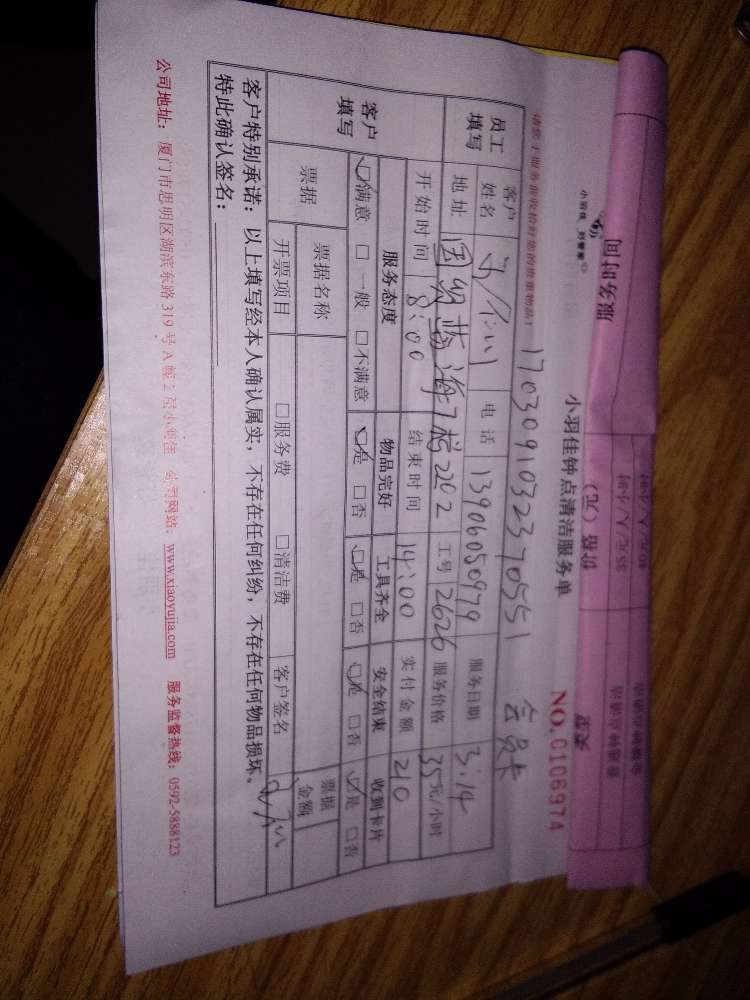 服务时间
价格（元）
35元/人/小时
小羽佳 好管家
小羽佳钟点清洁服务单
NO.0106974
请您于服务前收拾好您的贵重物品！
1703091032370551 会员卡
员工填写 客户姓名 电话 13906050979 服务日期 3.14
地址 国贸蓝海7栋2202 工号 2626 服务价格 35元/小时
开始时间 8:00 结束时间 14:00 实付金额 210
客户填写 服务态度 物品完好 工具齐全 安全结束 收到卡片
☑满意 □一般 □不满意 ☑是 □否 ☑是 □否 ☑是 □否 ☑是 □否
票据 票据名称 票据金额
开票项目 □服务费 □清洁费 客户签名
客户特别承诺：以上填写经本人确认属实，不存在任何纠纷，不存在任何物品损坏。
特此确认签名：
公司地址：厦门市思明区湖滨东路319号A幢2层小羽佳 公司网站：www.xiaoyujia.com 服务监督热线：0592-5888123